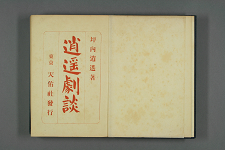 坪內逍遙著
逍遙劇談
東京 天佑社發行